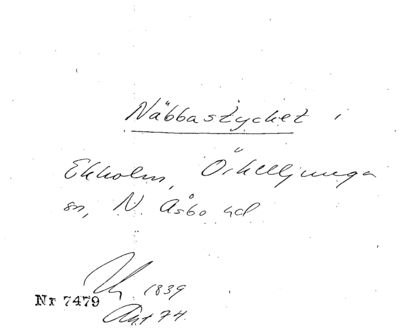 Näbbastycket i
Ekholm, Örkelljunga
sn, N. Åsbo hd
1839
Nr 7479
Akt 74.